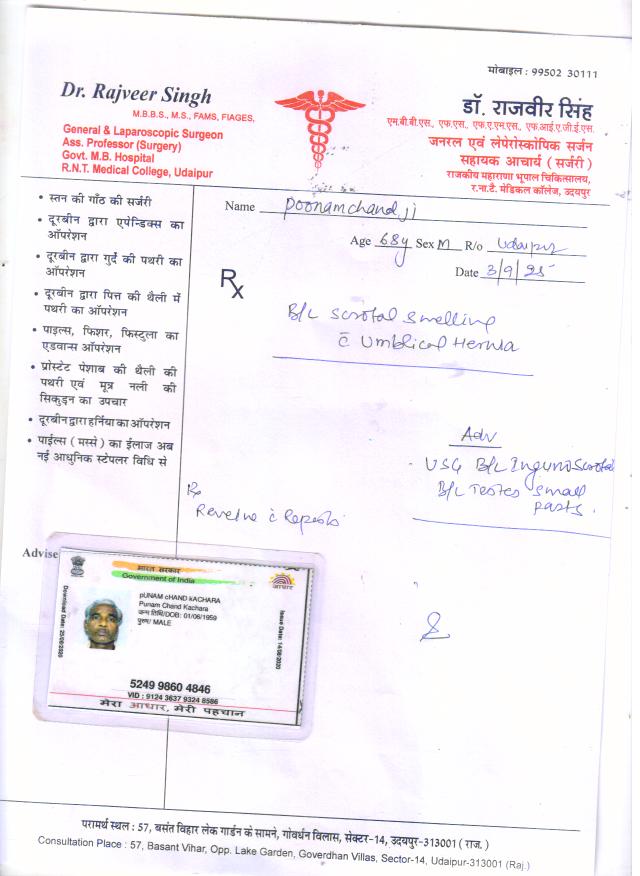 मोबाइल : 99502 30111
Dr. Rajveer Singh
M.B.B.S., M.S., FAMS, FIAGES,
General & Laparoscopic Surgeon
Ass. Professor (Surgery)
Govt. M.B. Hospital
R.N.T. Medical College, Udaipur
डॉ. राजवीर सिंह
एम.बी.बी.एस., एफ.एस., एफ.ए.एम.एस., एफ.आई.ए.जी.ई.एस.
जनरल एवं लेपेरोस्कोपिक सर्जन
सहायक आचार्य (सर्जरी)
राजकीय महाराणा भूपाल चिकित्सालय,
र.ना.टै. मेडिकल कॉलेज, उदयपुर
• स्तन की गाँठ की सर्जरी
• दूरबीन द्वारा एपेन्डिक्स का
ऑपरेशन
• दूरबीन द्वारा गुर्दे की पथरी का
ऑपरेशन
• दूरबीन द्वारा पित्त की थैली में
पथरी का ऑपरेशन
• पाइल्स, फिशर, फिस्टुला का
एडवान्स ऑपरेशन
• प्रोस्टेट पेशाब की थैली की
पथरी एवं मूत्र नली की
सिकुड़न का उपचार
• दूरबीन द्वारा हर्निया का ऑपरेशन
• पाईल्स (मस्से) का ईलाज अब
नई आधुनिक स्टेपलर विधि से
Name Poonamchand ji
Age 68y Sex M R/o Udaipur
Date 3/9/25
Rx
B/L Scrotal Swelling
c̄ Umblical Hernia
Adv
USG B/L Inguno Scrotal
B/L Testes small
parts.
Rx
Reveiw c̄ Reports
Advise
भारत सरकार
Government of India
आधार
pUNAM cHAND kACHARA
Punam Chand Kachara
जन्म तिथि/DOB: 01/06/1959
पुरुष/ MALE
Download Date: 25/08/2020
Issue Date: 14/08/2020
5249 9860 4846
VID : 9124 3637 9324 8586
मेरा आधार, मेरी पहचान
परामर्थ स्थल : 57, बसंत विहार लेक गार्डन के सामने, गोवर्धन विलास, सेक्टर-14, उदयपुर-313001 ( राज. )
Consultation Place : 57, Basant Vihar, Opp. Lake Garden, Goverdhan Villas, Sector-14, Udaipur-313001 (Raj.)